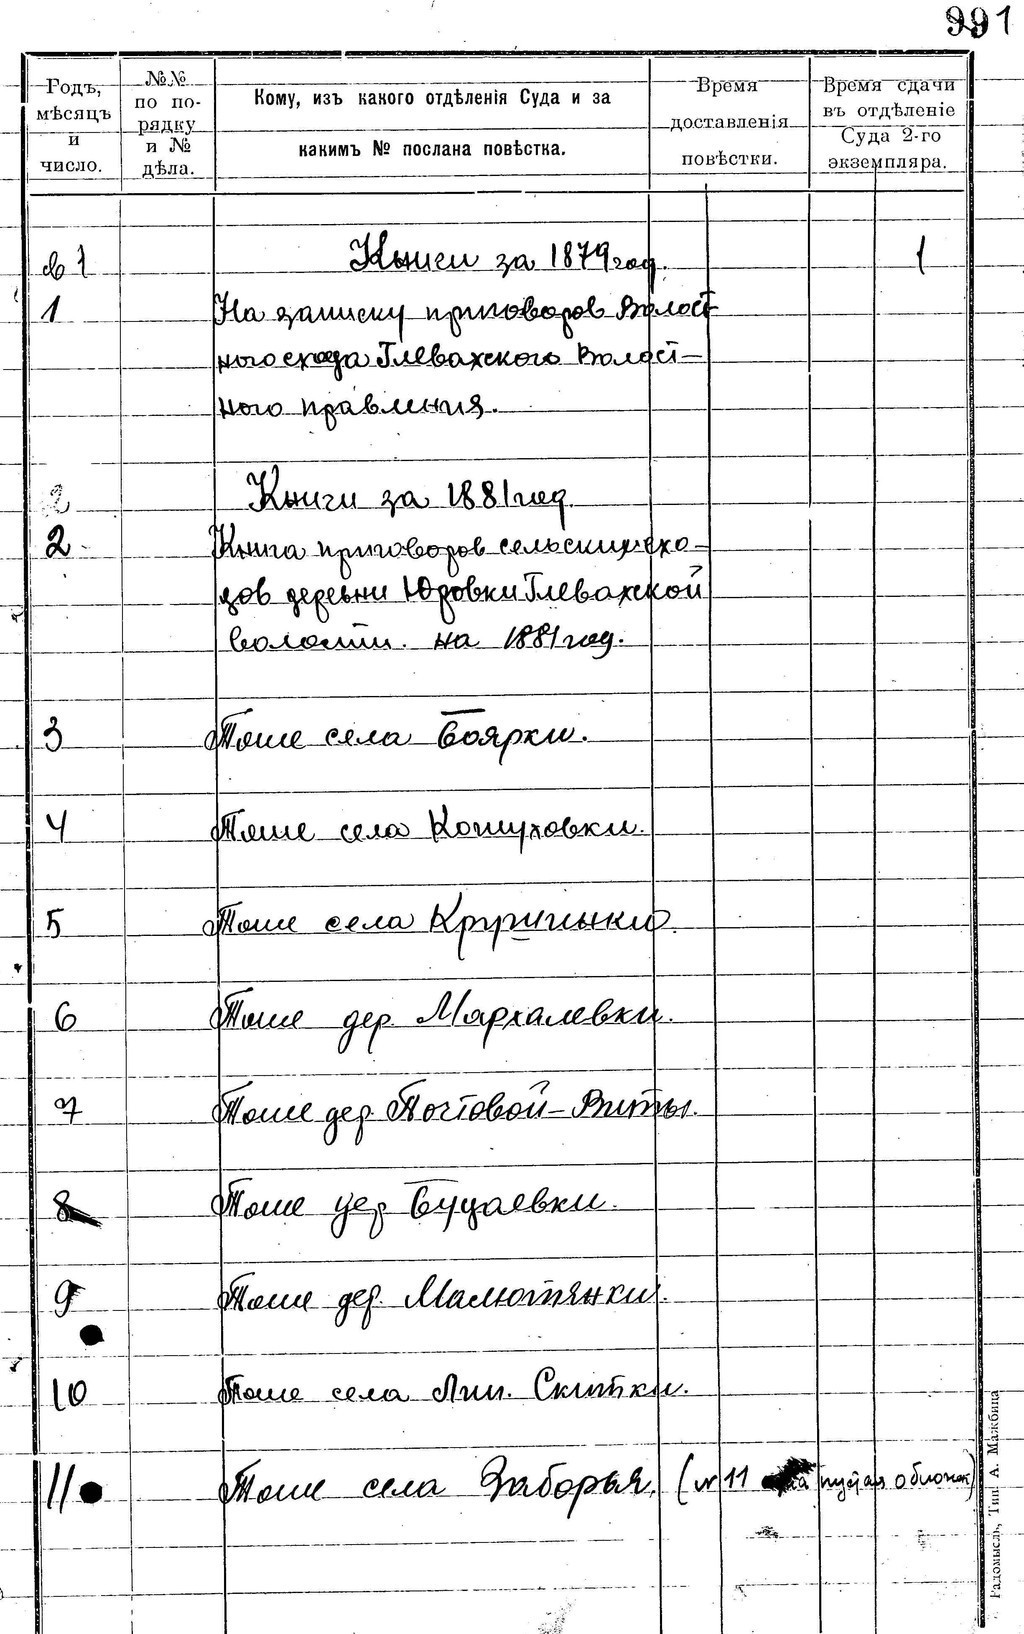 991
Годъ,
мѣсяцъ
и
число.
№№
по по-
рядку
и №
дѣла.
Кому, изъ какого отдѣленія Суда и за
какимъ № послана повѣстка.
Время
доставленія
повѣстки.
Время сдачи
въ отдѣленіе
Суда 2-го
экземпляра.
Книги за 1879 год. 1
1 На записку приговоров Волост-
ного схода Глевахского Волост-
ного правления.
2 Книги за 1881 год.
2 Книга приговоров сельских схо-
дов деревни Юровки Глевахской
волости. на 1881 год.
3 Тоше села Боярки.
4 Тоше села Кошуховки.
5 Тоше села Кругинки.
6 Тоше дер. Мархалевки.
7 Тоше дер. Почтовой-Виты.
8 Тоше дер. Будаевки.
9 Тоше дер. Малютянки.
10 Тоше села Лип. Скитки.
11 Тоше села Заборья. (№11 пустая обложка)
Радомысль, Тип. А. Мажбица